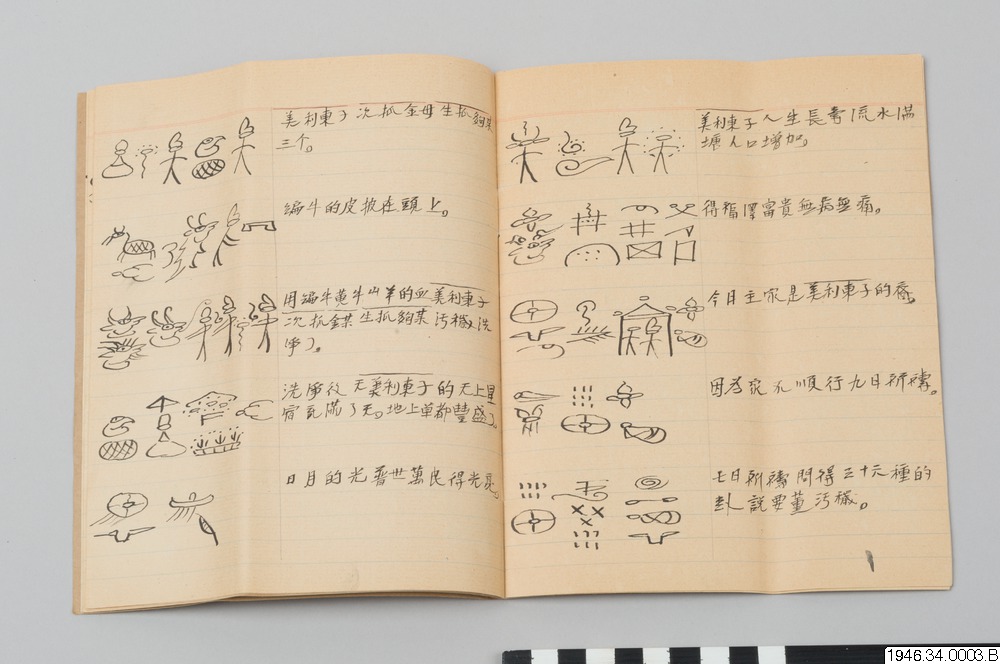 美利東子次抓金母生抓夠某
三个。
編牛的皮披在頭上。
用編牛黃牛山羊的血美利東子
次抓金某生抓夠某污穢洗
淨了。
洗淨後 天美利東子的天上星
宿亮滿了天。地上草都豐盛了。
日月的光普世萬民得光亮。
美利東子人生長壽流水滿
塘人口增加。
得福澤富貴無病無痛。
今日主家是美利東子的裔。
因為家不順行九日祈禱。
七日祈禱問得三十六種的
卦說要董污穢。
1946.34.0003.B